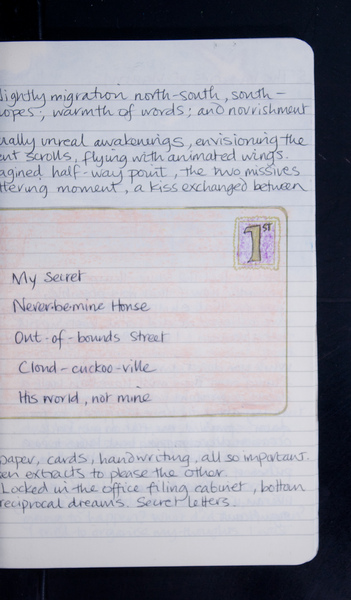 nightly migration north-south, south-
opes; warmth of words; and nourishment.
ually unreal awakenings, envisioning the
ent scrolls, flying with animated wings.
agined half-way point, the two missives
ttering moment, a kiss exchanged between
1ST
My Secret
Never-be-mine House
Out-of-bounds Street
Cloud-cuckoo-ville
His world, not mine
paper, cards, handwriting, all so important.
en extracts to please the other.
Locked in the office filing cabinet, bottom
reciprocal dreams. Secret letters.